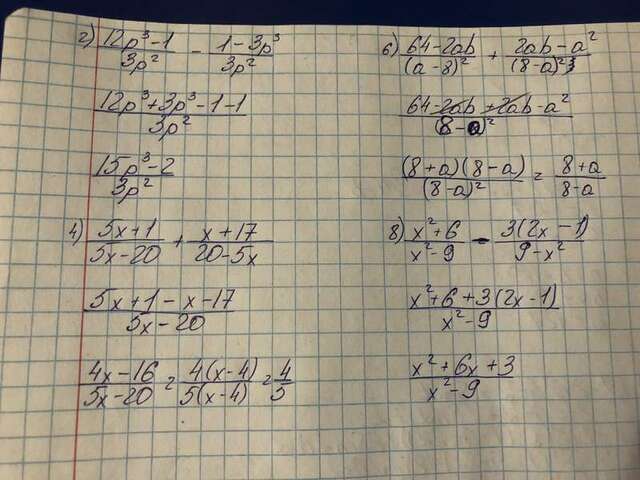 2) (12p³-1)/(3p²) - (1-3p³)/(3p²)
(12p³+3p³-1-1)/(3p²)
(15p³-2)/(3p²)
4) (5x+1)/(5x-20) + (x+17)/(20-5x)
(5x+1-x-17)/(5x-20)
(4x-16)/(5x-20) = (4(x-4))/(5(x-4)) = 4/5
6) (64-2ab)/(a-8)² + (2ab-a²)/(8-a)²
(64-2ab+2ab-a²)/(8-a)²
((8+a)(8-a))/(8-a)² = (8+a)/(8-a)
8) (x²+6)/(x²-9) - (3(2x-1))/(9-x²)
(x²+6+3(2x-1))/(x²-9)
(x²+6x+3)/(x²-9)